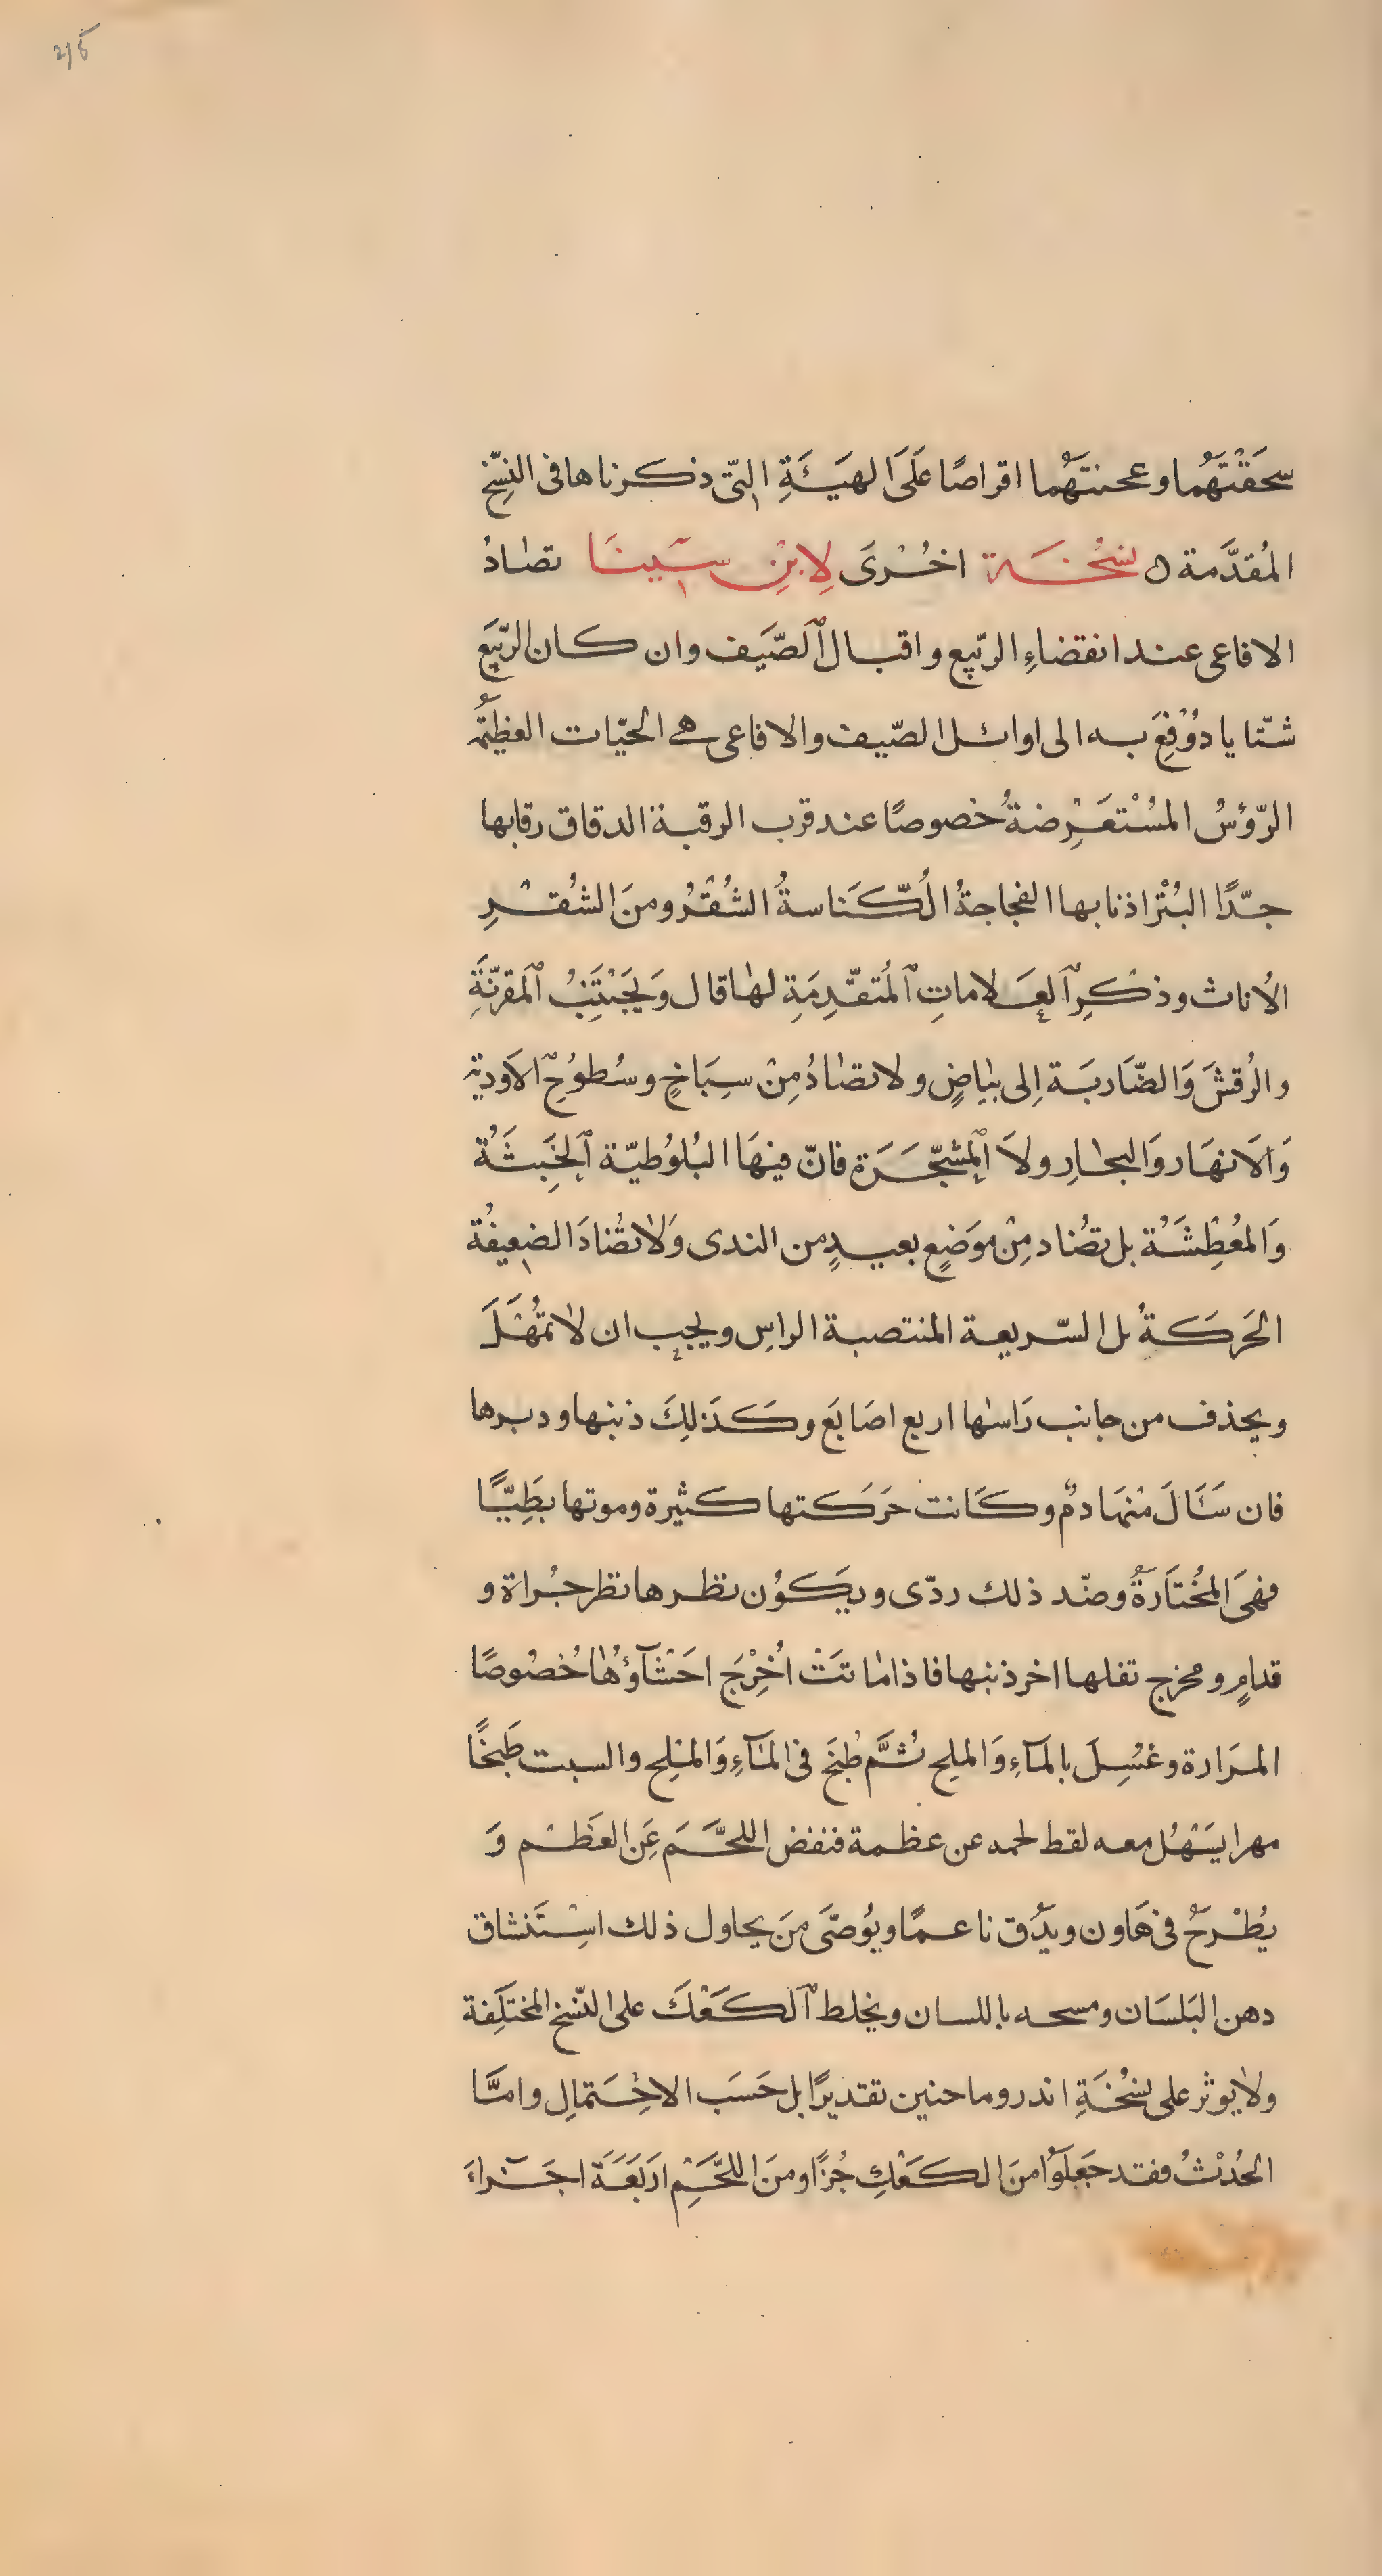 215
سحَقْتَهُما وعجنتَهُما اقراصًا عَلَى الهيَئَةِ التّى ذكرناها فى النِسّخ
المُقدَّمة ه نسْخُة اخُرْىَ لِابْنِ سِّينَا تصَادُ
الافاعى عند انقضاءِ الربّيع واقبال الَصّيَف وان كان الربّيَع
شتّايا دُوُفِعَ به الى اوائل الصّيف والافاعى هى الحيّات العظِيَمُة
الرّؤسُ المسُتْعَرِضةُ خصوصًا عند قرب الرقبة الدقاق رقابها
جدّاً البُتْر اذنابها الفجاجةُ الُكّنَاسةُ الشُقْرُ ومنَ الشُقْرِ
الُاناث وذكِر العَلاماتِ المُتقّدِمَةِ لها قال وَيَجَتْنِبُ المَقرنّةَ
والرُقشَ وَالضّاربَة اِلى بيَاضٍ ولا تصَادُ مِنْ سِبَاخٍ وسُطوُحِ الاَودية
وَالاَنهَار وَالبحارِ ولاَ المشّجَرَة فانّ فيهَا البُلوُطيّة الَخبِيَثُة
وَالمعُطِشَُة بل تصُاد مِنْ موَضِعٍ بعيدٍ من الندى وَلا تصُادَ الضعيفُة
الحَركَةُ بل السّريعة المنتصبة الراسِ ويجب ان لا تمُهَْلَ
ويحذف من جانب رَاسها اربع اصَابَع وكَذَلِكَ ذنبها ودبرها
فان سَئَالَ منْهَا دمٌ وكَانت حَرَكتها كثيرة وموتها بطَيِّئًا
فهىَ المُختَارةُ وضدّ ذلك ردّى ويكَوُن نظرها نظر جُراة و
قدامٍ ومخرج تفلها اخر ذنبها فاذا ماتتَْ اُخْرِجَ احَشْآؤهُا خُصوُصًا
المرَارة وغسُِلَ بالمَآءِ وَالملح ثُمَّ طُبخَ فى المآءِ وَالملِح والسبت طَبخًا
مهرا يسَهُْل معه لقط لحمه عن عظمة فنفض اللحَّمَ عَِن العَظْم وَ
يُطْرحُ فى هَاون ويدُّق ناعمًا ويوُصّىَ منَ يحاول ذلك اسِْتَنشاق
دهن البَلسَان ومسحه باللسان ويخلط الكَعْكَ على النسّخ المختلِفَة
ولا يوثر على نسْخُةِ اندروماحنين تقديرًا بل حَسَب الاحِتمالِ وامّا
الحُدْثُ فقد جعَلوُا منَ الكَعْكِ جُزًا ومنَ اللحّمِ اربَعَةَ اجَزآءَ